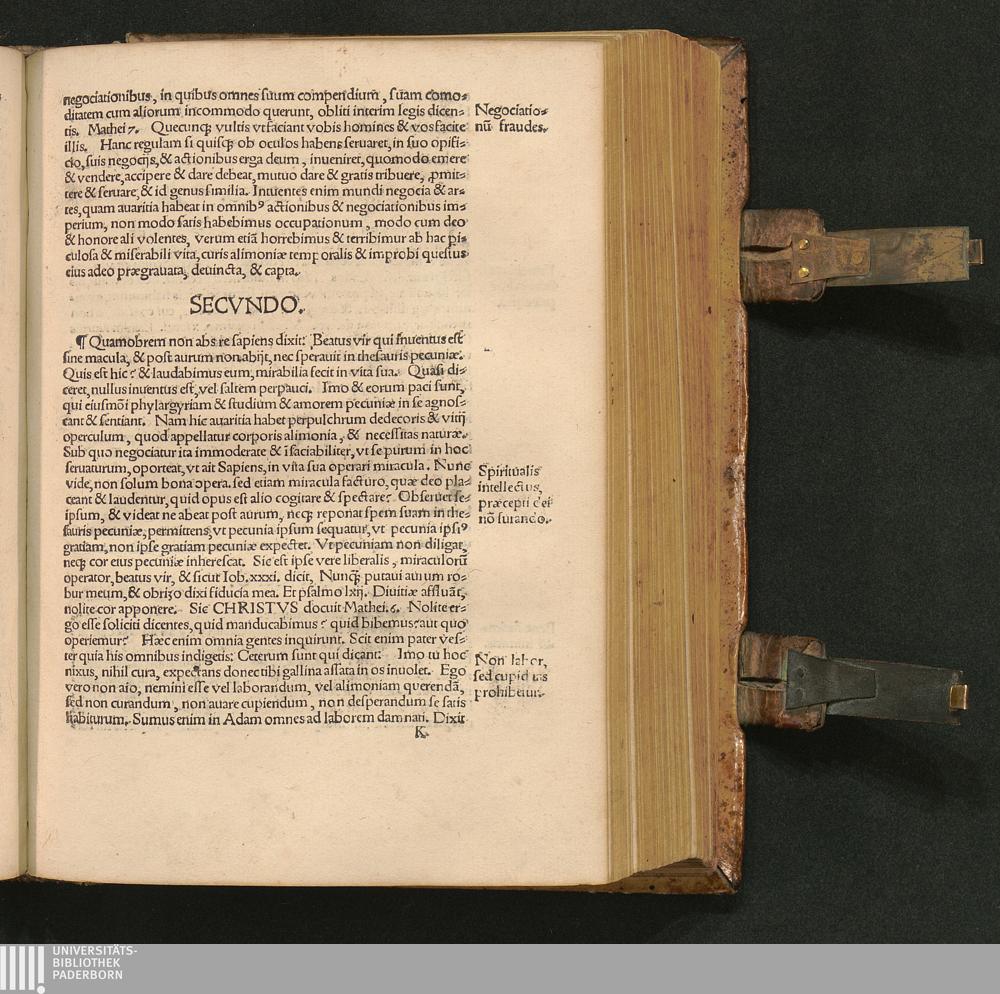 negociationibus, in quibus omnes suum compendium, suam como⸗
ditatem cum aliorum incommodo querunt, obliti interim legis dicen⸗
tis. Mathei 7. Quecunqꝫ vultis vt faciant vobis homines & vos facite
illis. Hanc regulam si quisqꝫ ob oculos habens seruaret, in suo opifi⸗
cio, suis negocijs, & actionibus erga deum, inueniret, quomodo emere
& vendere, accipere & dare debeat, mutuo dare & gratis tribuere, ꝓmit⸗
tere & seruare, & id genus similia. Intuentes enim mundi negocia & ar⸗
tes, quam auaritia habeat in omnibꝰ actionibus & negociationibus im⸗
perium, non modo satis habebimus occupationum, modo cum deo
& honore ali volentes, verum etiã horrebimus & terribimur ab hac pi⸗
culosa & miserabili vita, curis alimoniæ temporalis & improbi questus
eius adeo prægrauata, deuincta, & capta.
SECVNDO.
¶ Quamobrem non abs re sapiens dixit: Beatus vir qui inuentus est
sine macula, & post aurum non abijt, nec sperauit in thesauris pecuniæ.
Quis est hic? & laudabimus eum, mirabilia fecit in vita sua. Quasi di⸗
ceret, nullus inuentus est, vel saltem perpauci. Imo & eorum paci sunt,
qui eiusmõi phylargyriam & studium & amorem pecuniæ in se agnos⸗
cant & sentiant. Nam hic auaritia habet perpulchrum dedecoris & vitij
operculum, quod appellatur corporis alimonia, & necessitas naturæ.
Sub quo negociatur ita immoderate & isaciabiliter, vt se purum in hoc
seruaturum, oporteat, vt ait Sapiens, in vita sua operari miracula. Nunc
vide, non solum bona opera. sed etiam miracula facturo, quæ deo pla⸗
ceant & laudentur, quid opus est alio cogitare & spectare? Obseruet se⸗
ipsum, & videat ne abeat post aurum, necqꝫ reponat spem suam in the⸗
sauris pecuniæ, permittens, vt pecunia ipsum sequatur, vt pecunia ipsiꝰ
gratiam, non ipse gratiam pecuniæ expectet. Vt pecuniam non diligat,
necqꝫ cor eius pecuniæ inherescat. Sic est ipse vere liberalis, miraculorũ
operator, beatus vir, & sicut Iob. xxxi. dicit, Nunqꝫ putaui aurum ro⸗
bur meum, & obrizo dixi fiducia mea. Et psalmo lxij. Diuitiæ affluãt,
nolite cor apponere. Sic CHRISTVS docuit Mathei. 6. Nolite er⸗
go esse soliciti dicentes, quid manducabimus? quid bibemus? aut quo
operiemur? Hæc enim omnia gentes inquirunt. Scit enim pater ves⸗
ter quia his omnibus indigetis: Ceterum sunt qui dicant: Imo tu hoc
nixus, nihil cura, expectans donec tibi gallina assata in os inuolet. Ego
vero non aio, nemini esse vel laborandum, vel alimoniam querendã,
sed non curandum, non auare cupiendum, non desperandum se satis
habiturum. Sumus enim in Adam omnes ad laborem damnati. Dixit
K.
Negociatio⸗
nũ fraudes.
Spiritualis
intellectus,
præcepti dei
nõ furando.
Non labor,
sed cupiditas
prohibetur.
UNIVERSITÄTS-
BIBLIOTHEK
PADERBORN